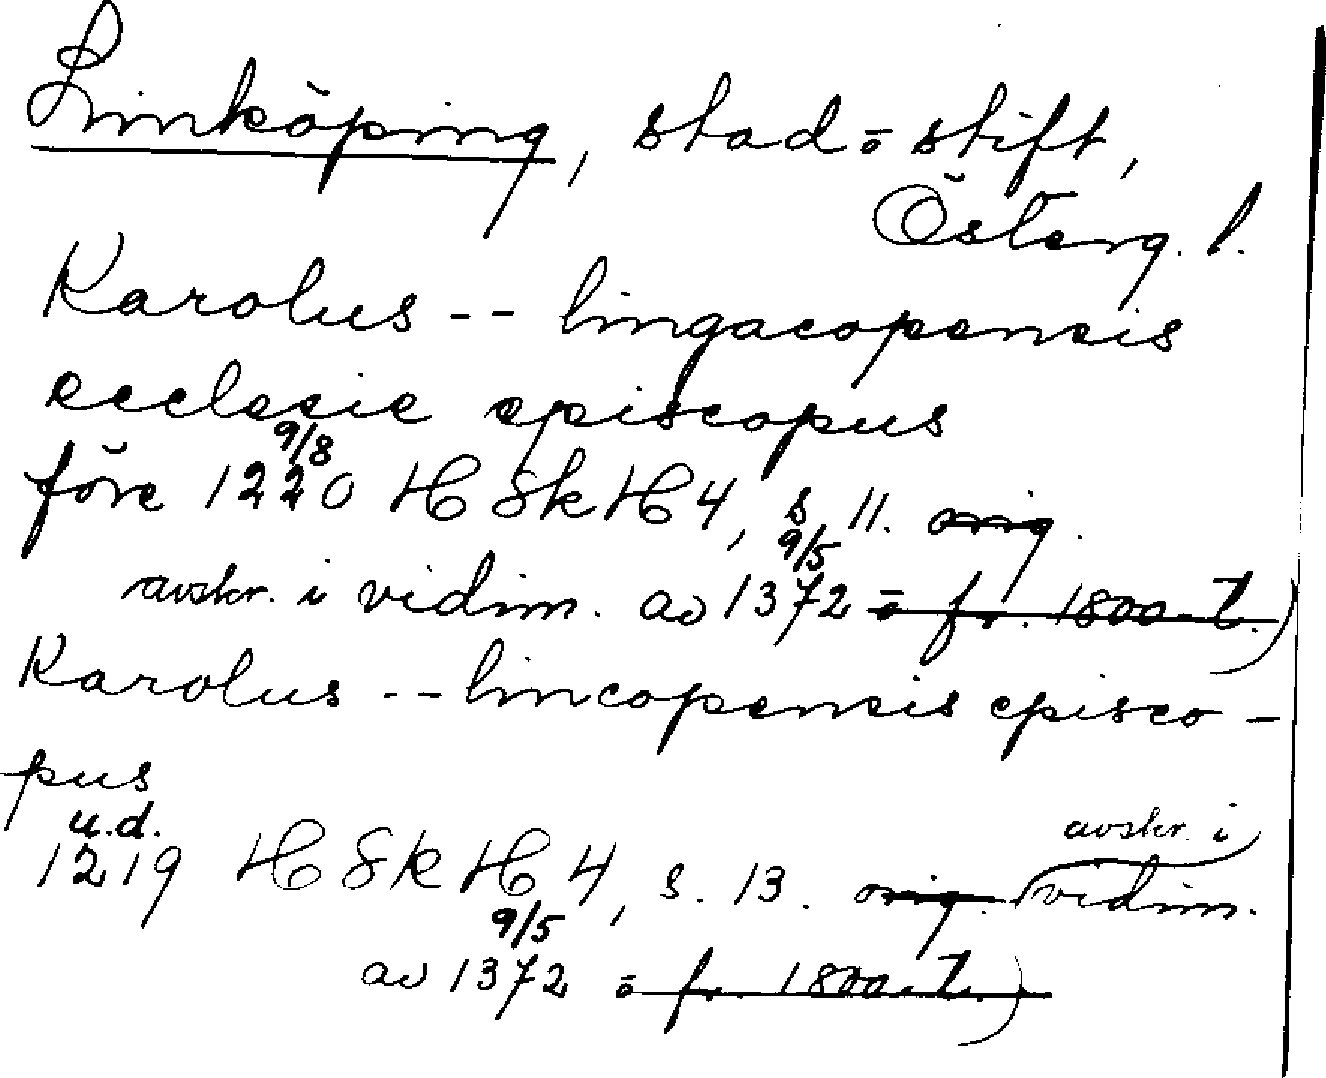 Linköping, stad o stift,
Österg. l.
Karolus -- lingacopensis
ecclesie episcopus
9/8
före 1220 HSkH 4, s 11. orig.
9/5
avskr. i vidim. av 1372 o fr. 1800-t.)
Karolus -- lincopensis episco-
pus
u.d.
1219 HSkH 4, s. 13. orig. (vidim.
avskr. i
9/5
av 1372 o fr. 1800-t.)